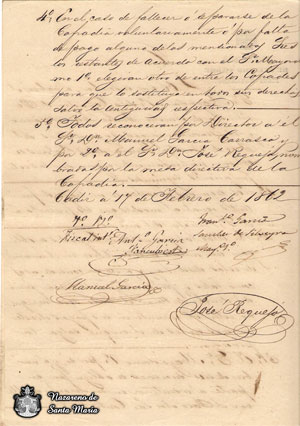 4º En el caso de fallecer ó separarse de la
Cofradia voluntariamente ó por falta
de pago alguno de los mencionados
estantes de acuerdo con el Sr. Mayordo
mo 1º, elegiran otro de entre los Cofrades
para que lo sostituya en todos sus derechos
salvo la antiguedad respectiva.
5º Todos reconoceran por Director a el
Sr. Dn. Manuel Garcia Carrasco y
por 2º a el Sr. Dn. José Requejo, nom
brados por la mesa directiva de la
Cofradia.
Cadiz a 17 de Febrero de 1862
Vº Bº
Fiscal
Antº Garcia
Manuel Garcia
José Requejo
Nazareno de
Santa Maria